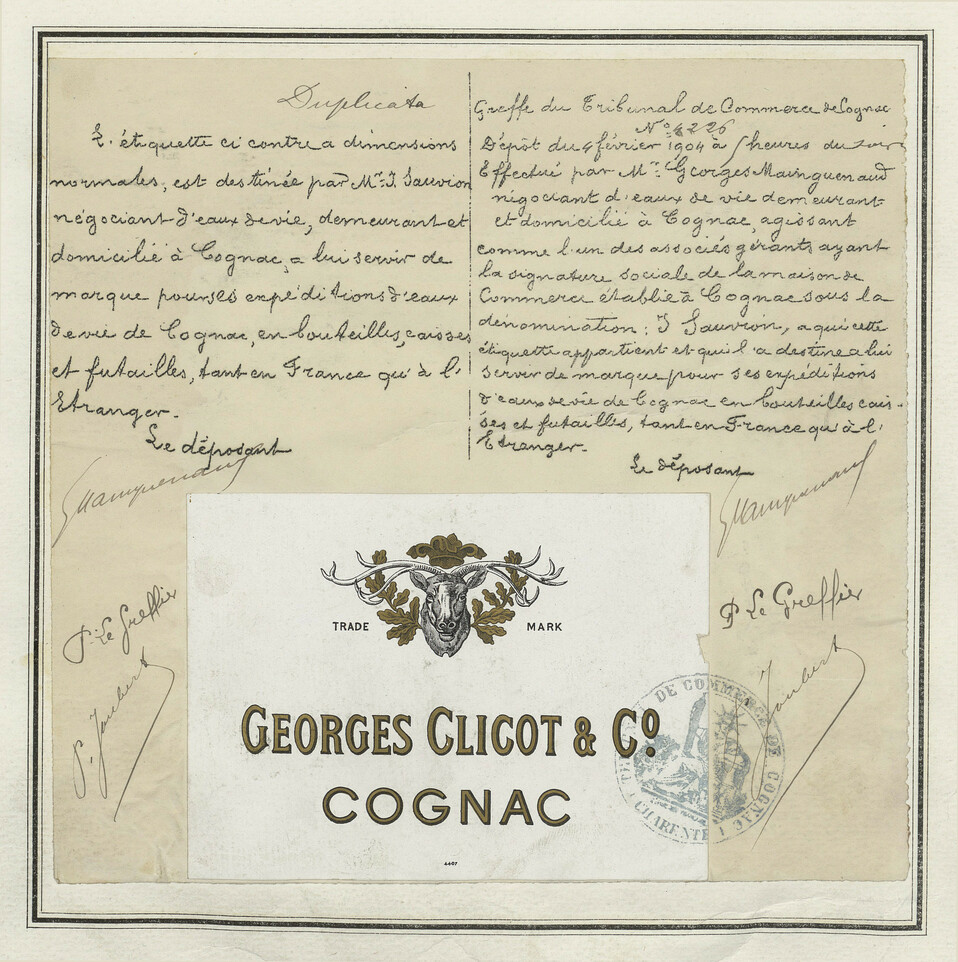 Duplicata
L'étiquette ci contre a dimensions
normales, est destinée par Mr. J. Sauvion
négociant d'eaux de vie, demeurant et
domicilié à Cognac, a lui servir de
marque pour ses expéditions d'eaux
de vie de Cognac, en bouteilles, caisses
et futailles, tant en France qu'à l'
Etranger.
Le déposant
GMainguenaud
P. Le Greffier
P. Joubert
Greffe du Tribunal de Commerce de Cognac
No 4226
Dépôt du 4 février 1904 à 5 heures du soir
Effectué par Mr. Georges Mainguenaud
négociant d'eaux de vie demeurant
et domicilié à Cognac, agissant
comme l'un des associés gérants ayant
la signature sociale de la maison de
Commerce établie à Cognac sous la
dénomination: J Sauvion, a qui cette
étiquette appartient et qu'il a destine a lui
servir de marque pour ses expéditions
d'eaux de vie de Cognac en bouteilles cais-
ses et futailles, tant en France qu'à l'
Etranger.
Le déposant
GMainguenaud
P Le Greffier
Joubert
TRADE MARK
GEORGES CLICOT & Co
COGNAC
4407
DE COMMERCE DE COGNAC
CHARENTE